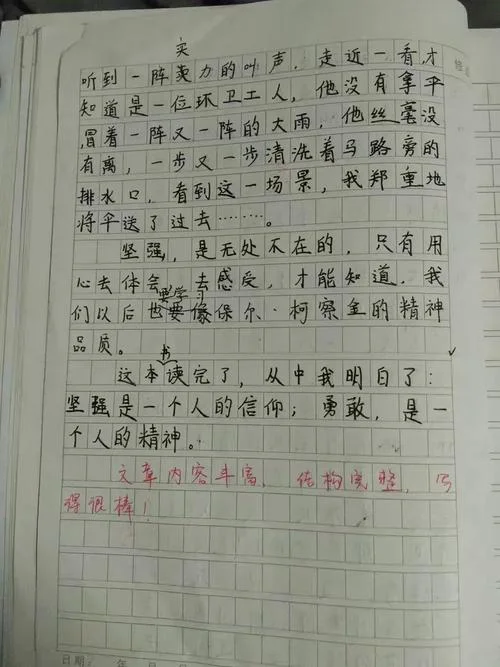 买
听到一阵卖力的叫声，走近一看，才
知道是一位环卫工人，他没有拿伞
，冒着一阵又一阵的大雨，他丝毫没
有离，一步又一步清洗着马路旁的
排水口，看到这一场景，我郑重地
将伞送了过去………。
坚强，是无处不在的，只有用
心去体会、去感受，才能知道，我
要学习
们以后也要像保尔·柯察金的精神
品质。
书
这本读完了，从中我明白了：
坚强是一个人的信仰；勇敢，是一
个人的精神。
文章内容丰富，结构完整，写
得很棒！
日期： 年 月